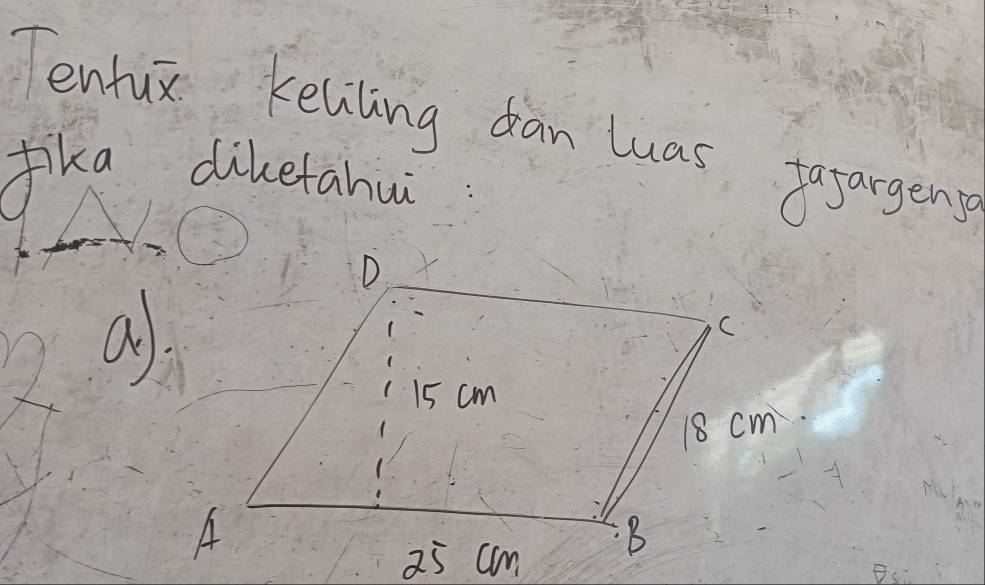 Tentux keliling dan luas jajargenja
jika diketahui :
a).
D
C
15 cm
18 cm
A
B
25 cm